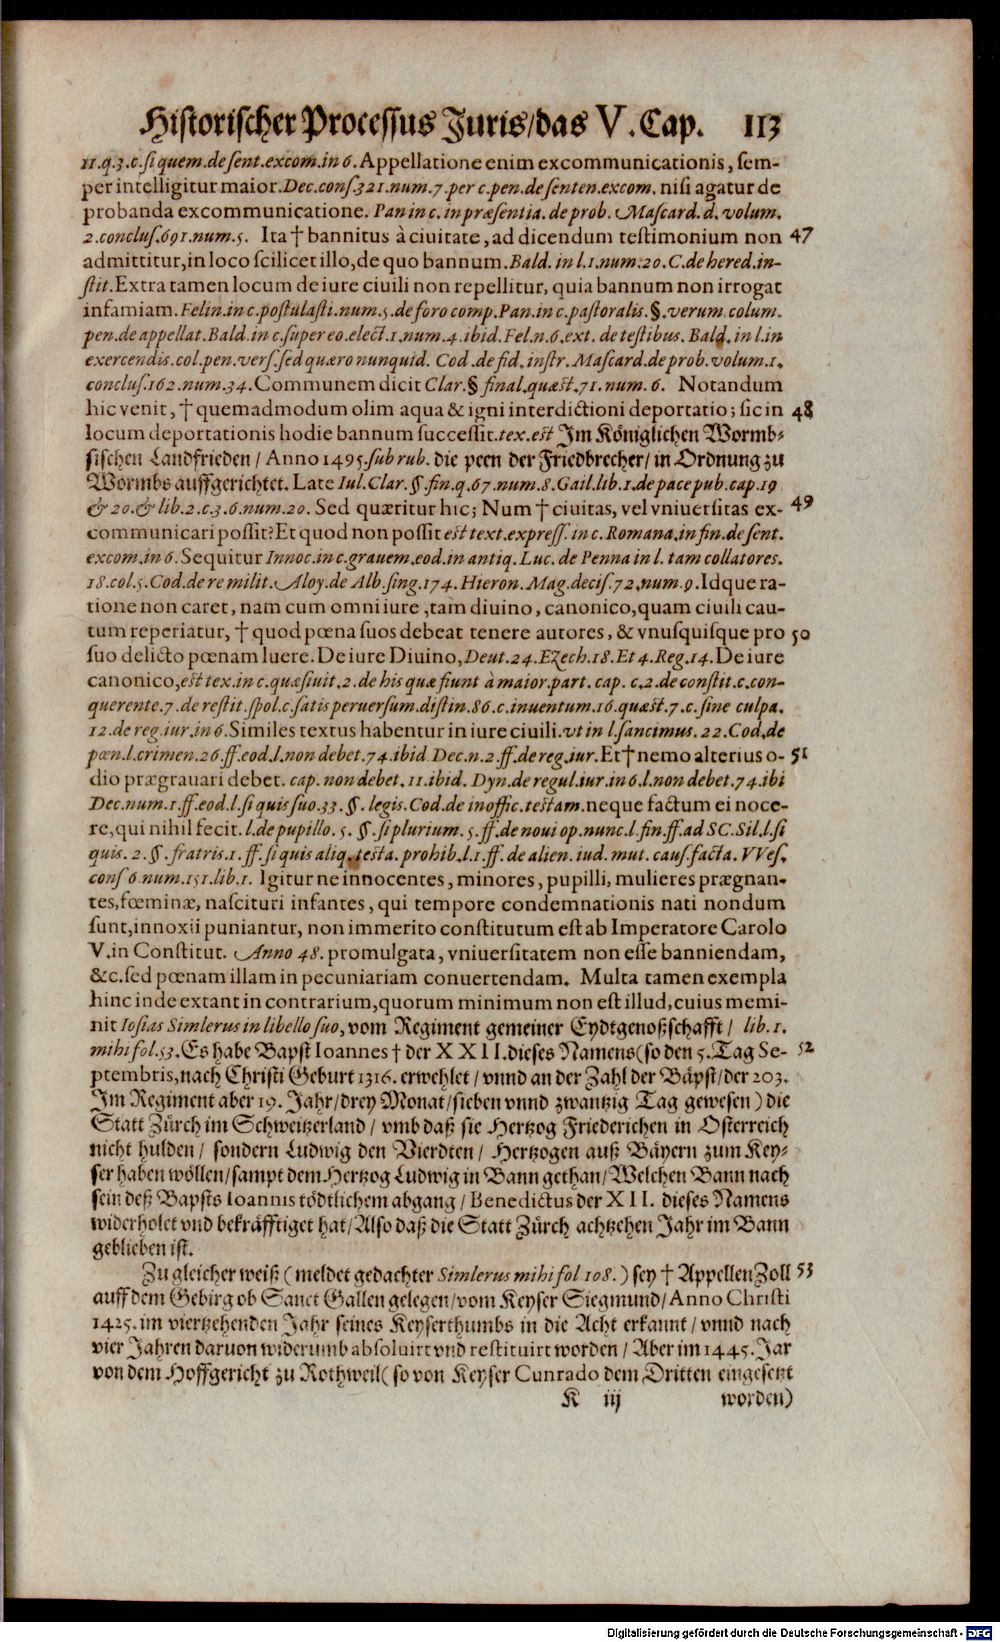 Historischer Processus Juris/das V. Cap. 113
11.q.3.c.si quem.de sent.excom.in 6. Appellatione enim excommunicationis, sem-
per intelligitur maior. Dec.cons.321.num.7.per c.pen.de senten.excom. nisi agatur de
probanda excommunicatione. Pan in c. in præsentia. de prob. Mascard. d. volum.
2.conclus.691.num.5. Ita † bannitus à ciuitate, ad dicendum testimonium non 47
admittitur, in loco scilicet illo, de quo bannum. Bald. in l.1.num.20.C.de hered.in-
stit. Extra tamen locum de iure ciuili non repellitur, quia bannum non irrogat
infamiam. Felin.in c.postulasti.num.5.de foro comp. Pan.in c.pastoralis.§.verum colum.
pen.de appellat. Bald.in c.super eo.elect.1.num.4.ibid. Fel.n.6.ext. de testibus. Bald. in l.in
exercendis.col.pen.vers.sed quæro nunquid. Cod.de fid.instr. Mascard.de prob.volum.1.
conclus.162.num.34. Communem dicit Clar.§ final.quæst.71.num.6. Notandum
hic venit, † quemadmodum olim aqua & igni interdictioni deportatio; sic in 48
locum deportationis hodie bannum successit.tex.est Im Königlichen Wormb-
sischen Landfrieden / Anno 1495.sub rub. die peen der Friedbrecher/ in Ordnung zu
Wormbs auffgerichtet. Late Iul.Clar.§.fin.q.67.num.8. Gail.lib.1.de pace pub.cap.19
& 20.& lib.2.c.3.6.num.20. Sed quæritur hic; Num † ciuitas, vel vniuersitas ex- 49
communicari possit? Et quod non possit est text.express. in c. Romana.in fin.de sent.
excom.in 6. Sequitur Innoc.in c.grauem.eod.in antiq. Luc. de Penna in l. tam collatores.
18.col.5.Cod.de re milit. Aloy.de Alb.sing.174. Hieron. Mag.decis.72.num.9. Idque ra-
tione non caret, nam cum omni iure, tam diuino, canonico, quam ciuili cau-
tum reperiatur, † quod pœna suos debeat tenere autores, & vnusquisque pro 50
suo delicto pœnam luere. De iure Diuino, Deut.24.Ezech.18.Et 4.Reg.14. De iure
canonico, est tex.in c.quæsiuit.2.de his quæ fiunt à maior.part. cap. c.2.de constit.c.con-
querente.7.de restit.spol.c.satis peruersum.distin.86.c.inuentum.16.quæst.7.c.sine culpa.
12.de reg.iur.in 6. Similes textus habentur in iure ciuili. vt in l.sancimus.22.Cod.de
pœn.l.crimen.26.ff.eod.l.non debet.74.ibid Dec.n.2.ff.de reg.iur. Et † nemo alterius o- 51
dio prægrauari debet. cap. non debet.11.ibid. Dyn.de regul.iur.in 6.l.non debet.74.ibi
Dec.num.1.ff.eod.l.si quis suo.33.§. legis.Cod.de inoffic.testam. neque factum ei noce-
re, qui nihil fecit. l.de pupillo.5.§.si plurium.5.ff.de noui op.nunc.l.fin.ff.ad SC.Sil.l.si
quis.2.§.fratris.1.ff.si quis aliq.testa.prohib.l.1.ff.de alien.iud.mut.caus.facta. VVes.
cons 6.num.151.lib.1. Igitur ne innocentes, minores, pupilli, mulieres prægnan-
tes, fœminæ, nascituri infantes, qui tempore condemnationis nati nondum
sunt, innoxii puniantur, non immerito constitutum est ab Imperatore Carolo
V. in Constitut. Anno 48. promulgata, vniuersitatem non esse banniendam,
&c. sed pœnam illam in pecuniariam conuertendam. Multa tamen exempla
hinc inde extant in contrarium, quorum minimum non est illud, cuius memi-
nit Iosias Simlerus in libello suo, vom Regiment gemeiner Eydtgenoßschafft / lib.1.
mihi fol.53. Es habe Bapst Ioannes † der XXII. dieses Namens (so den 5. Tag Se- 52
ptembris, nach Christi Geburt 1316. erwehlet / vnnd an der Zahl der Bäpst/ der 203.
Im Regiment aber 19. Jahr/ drey Monat/ sieben vnnd zwantzig Tag gewesen) die
Statt Zürch im Schweitzerland / vmb daß sie Hertzog Friederichen in Osterreich
nicht hulden / sondern Ludwig den Vierdten / Hertzogen auß Bäyern zum Key-
ser haben wöllen/ sampt dem Hertzog Ludwig in Bann gethan/ Welchen Bann nach
sein deß Bapsts Ioannis tödtlichem abgang / Benedictus der XII. dieses Namens
widerholet vnd bekräfftiget hat/ Also daß die Statt Zürch achtzehen Jahr im Bann
geblieben ist.
Zu gleicher weiß (meldet gedachter Simlerus mihi fol 108.) sey † Appellen Zoll 53
auff dem Gebirg ob Sanct Gallen gelegen/ vom Keyser Siegmund/ Anno Christi
1425. im viertzehenden Jahr seines Keyserthumbs in die Acht erkannt / vnnd nach
vier Jahren daruon widerumb absoluirt vnd restituirt worden / Aber im 1445. Jar
von dem Hoffgericht zu Rothweil (so von Keyser Cunrado dem Dritten eingesetzt
K iij worden)
Digitalisierung gefördert durch die Deutsche Forschungsgemeinschaft - DFG